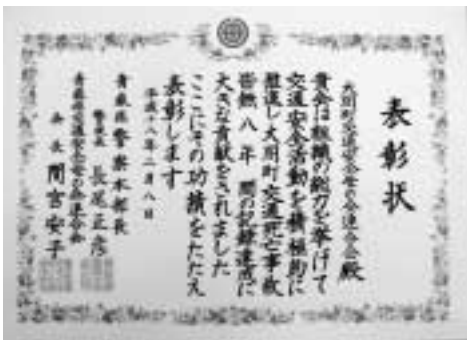 表彰状
大間町交通安全母の会連合会殿
貴会は組織の総力を挙げて
交通安全活動を積極的に
推進し大間町交通死亡事故
皆無八年間の記録達成に
大きな貢献をされました
ここにその功績をたたえ
表彰します
平成十八年二月八日
青森県警察本部長
警視長 長尾正彦
青森県交通安全母の会連合会
会長 間宮安子